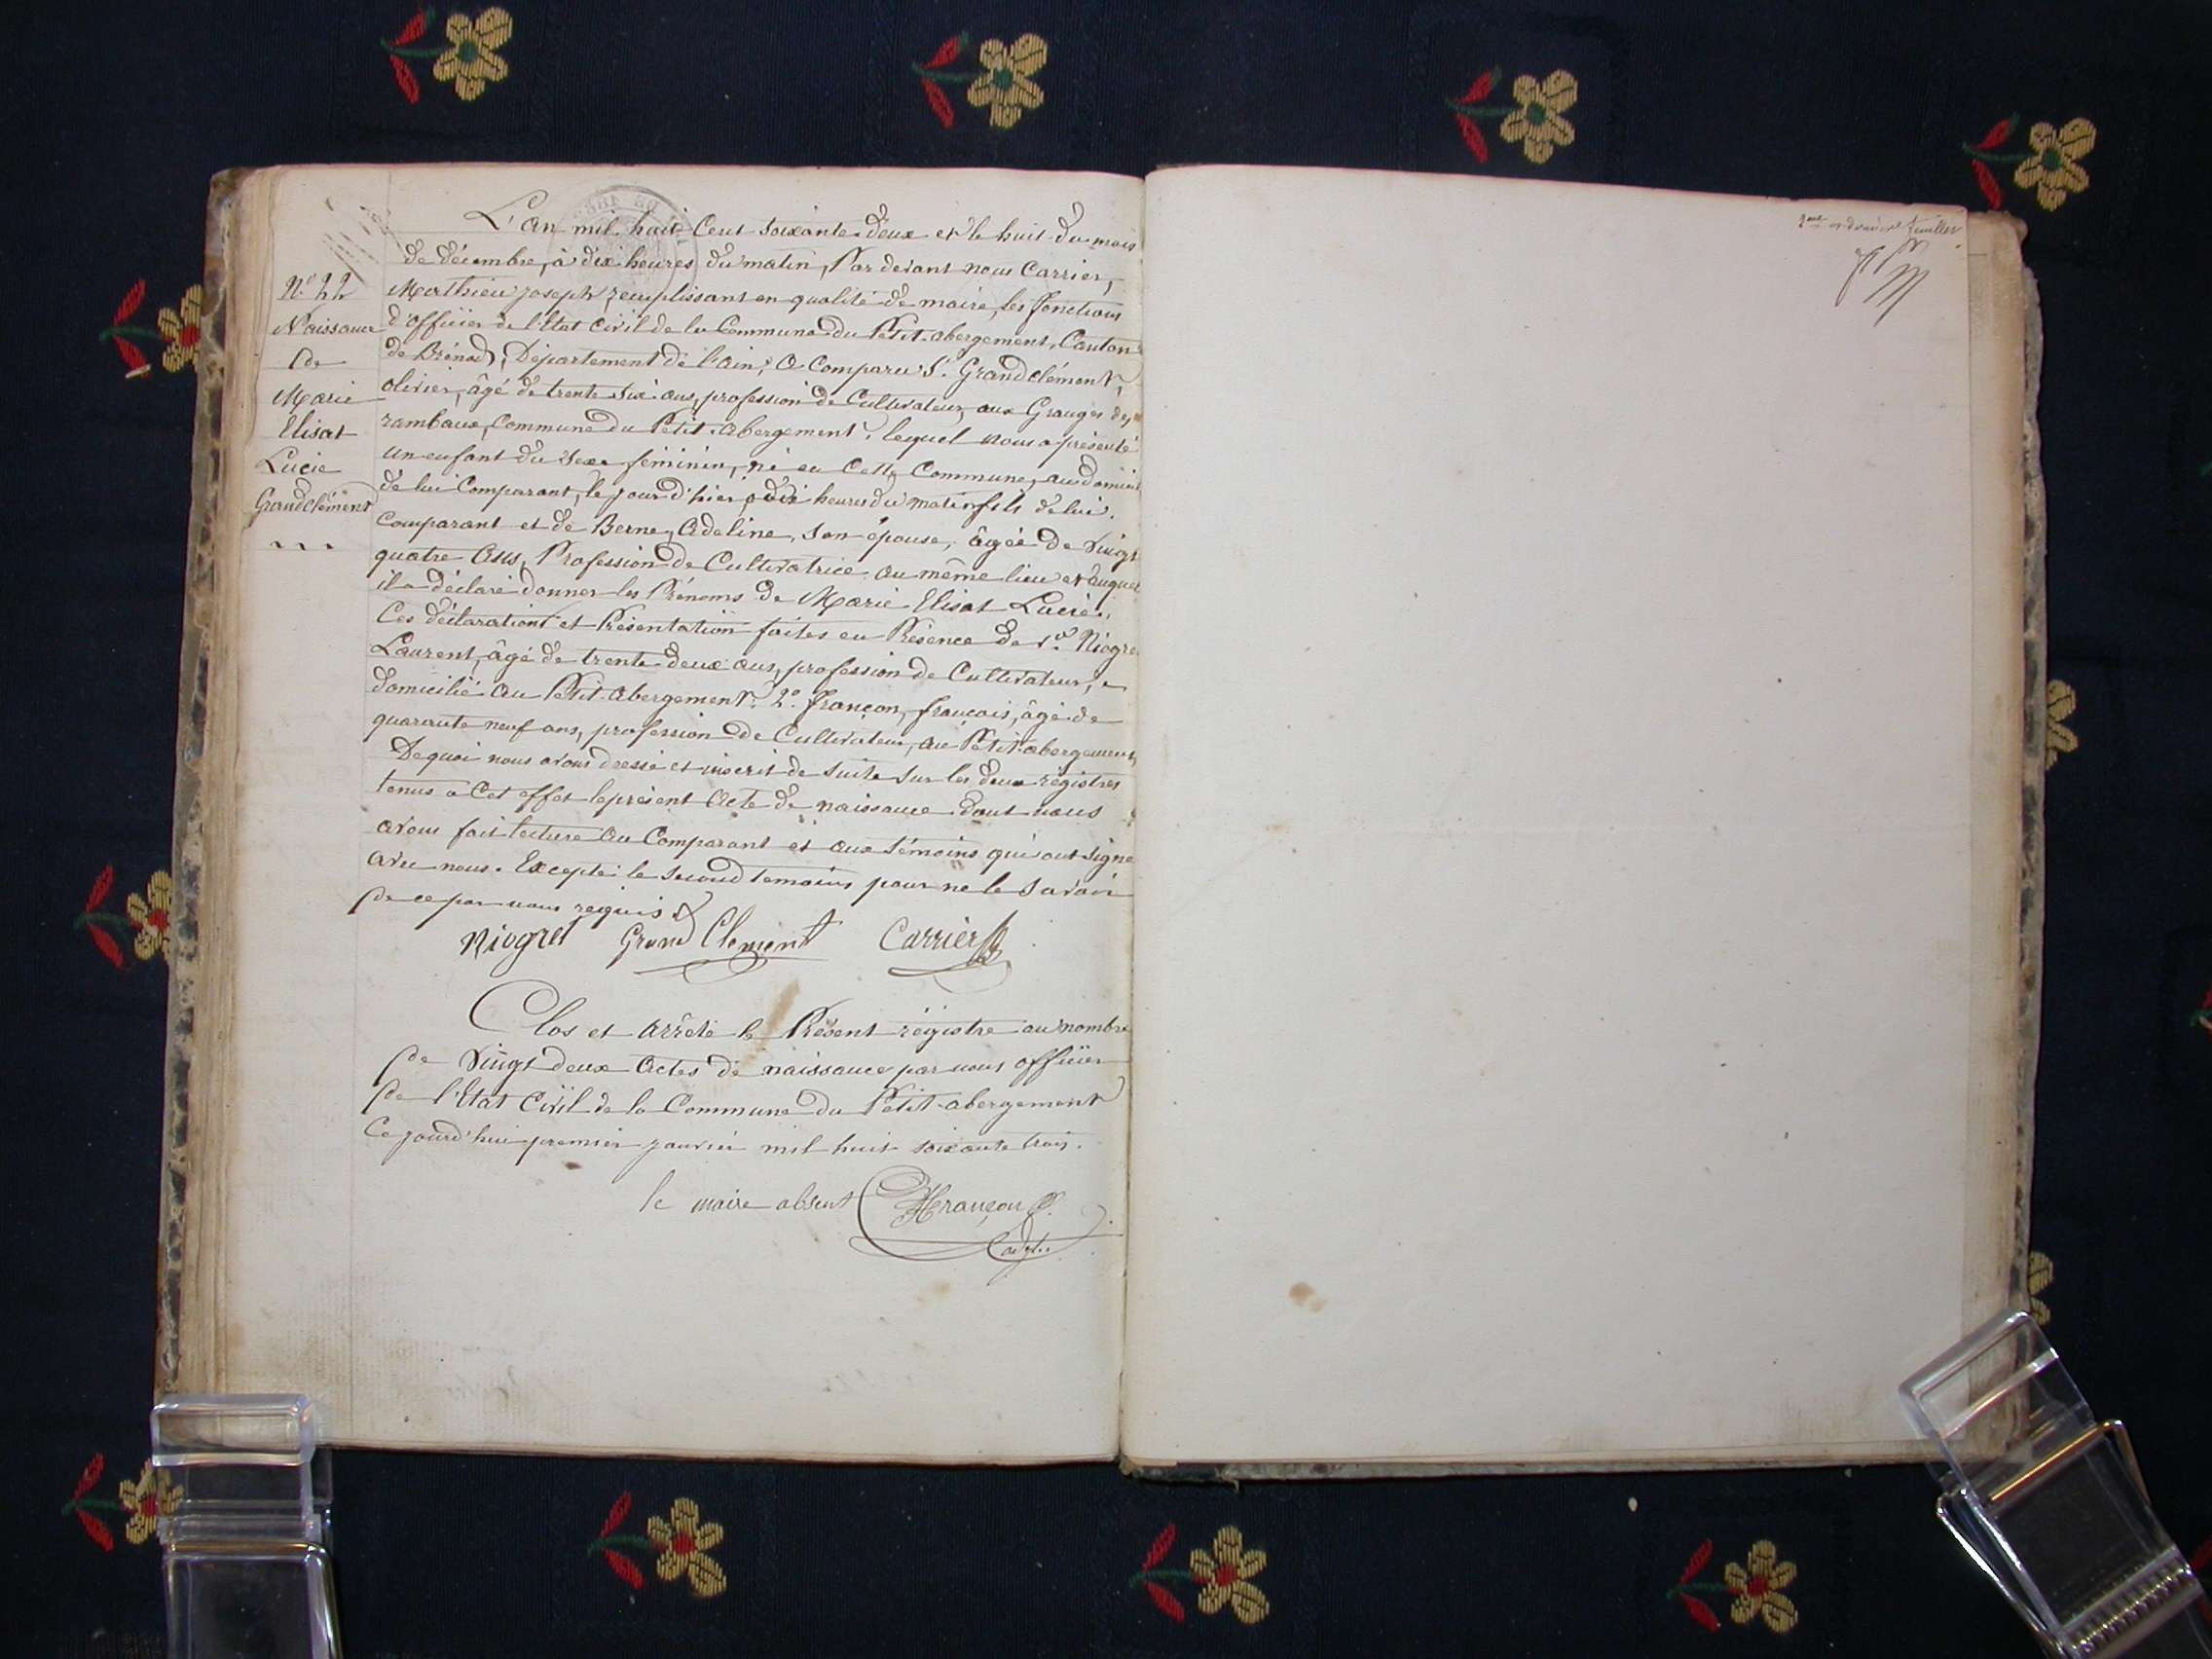 N.° 22
Naissance
de
Marie
Elisat
Lucie
Grandclément
L'an mil huit Cent soixante deux et le huit du mois
de décembre, à dix heures du matin, Par devant nous Carrier,
Mathieu Joseph, remplissant en qualité de maire, les fonctions
d'officier de l'Etat Civil de la Commune du Petit-abergement, Canton
de Brénod, Département de l'ain; a Comparu S.r Grandclément,
olivier, âgé de trente six ans, profession de Cultivateur, aux Granges des
rambaux, Commune du Petit-abergement, lequel nous a présenté
un enfant du sexe féminin, né en Cette Commune, au domicile
de lui Comparant, le jour d'hier, à dix heures du matin fils de lui
Comparant et de Berne, Adeline, son épouse, âgée de Vingt
quatre Ans, Profession de Cultivatrice au même lieu et auquel
il a déclaré donner les Prénoms de Marie Elisat Lucie.
Ces déclaration et Présentation faites en Présence de 1.° Niogret
Laurent, âgé de trente deux ans, profession de Cultivateur,
domicilié au Petit-abergement. 2.° françon, français, âgé de
quarante neuf ans, profession de Cultivateur, au Petit-abergement,
De quoi nous avons dressé et inscrit de suite sur les deux régistres
tenus a Cet effet le présent Acte de naissance dont nous
avons fait lecture au Comparant et aux témoins qui ont signé
avec nous. Excepté le second temoins pour ne le savoir
de ce par nous requis
Niogret Grand Clement Carrier
Clos et Arrêté le Présent régistre au nombre
de Vingt deux Actes de naissance par nous officier
de l'Etat Civil de la Commune du Petit-abergement
Ce jourd'hui premier janvier mil huit soixante trois.
le maire absent françon
adjt.
et dernier feuillet